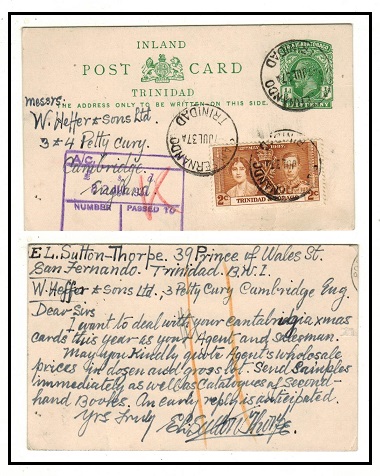 INLAND
POST CARD
TRINIDAD
THE ADDRESS ONLY TO BE WRITTEN ON THIS SIDE.
HALFPENNY
messrs.
W. Heffer & Sons Ltd.
3 & 4 Petty Cury.
Cambridge
England.
A/C.
NUMBER PASSED TO
FERNANDO
TRINIDAD
JUL 37
2c 2c
TRINIDAD & TOBAGO
E L. Sutton-Thorpe. 39 Prince of Wales St.
San Fernando. Trinidad. B.W.I.
W. Heffer & Sons Ltd., 3 Petty Cury Cambridge Eng.
Dear Sirs
I want to deal with your cantabrigia xmas
cards this year as your Agent and
May you Kindly quote Agent's wholesale
prices in dozen and gross lot. Send Samples
immediately as well as Catalogues of Second-
hand Books. An early reply is anticipated.
Yrs truly
E L Sutton Thorpe.